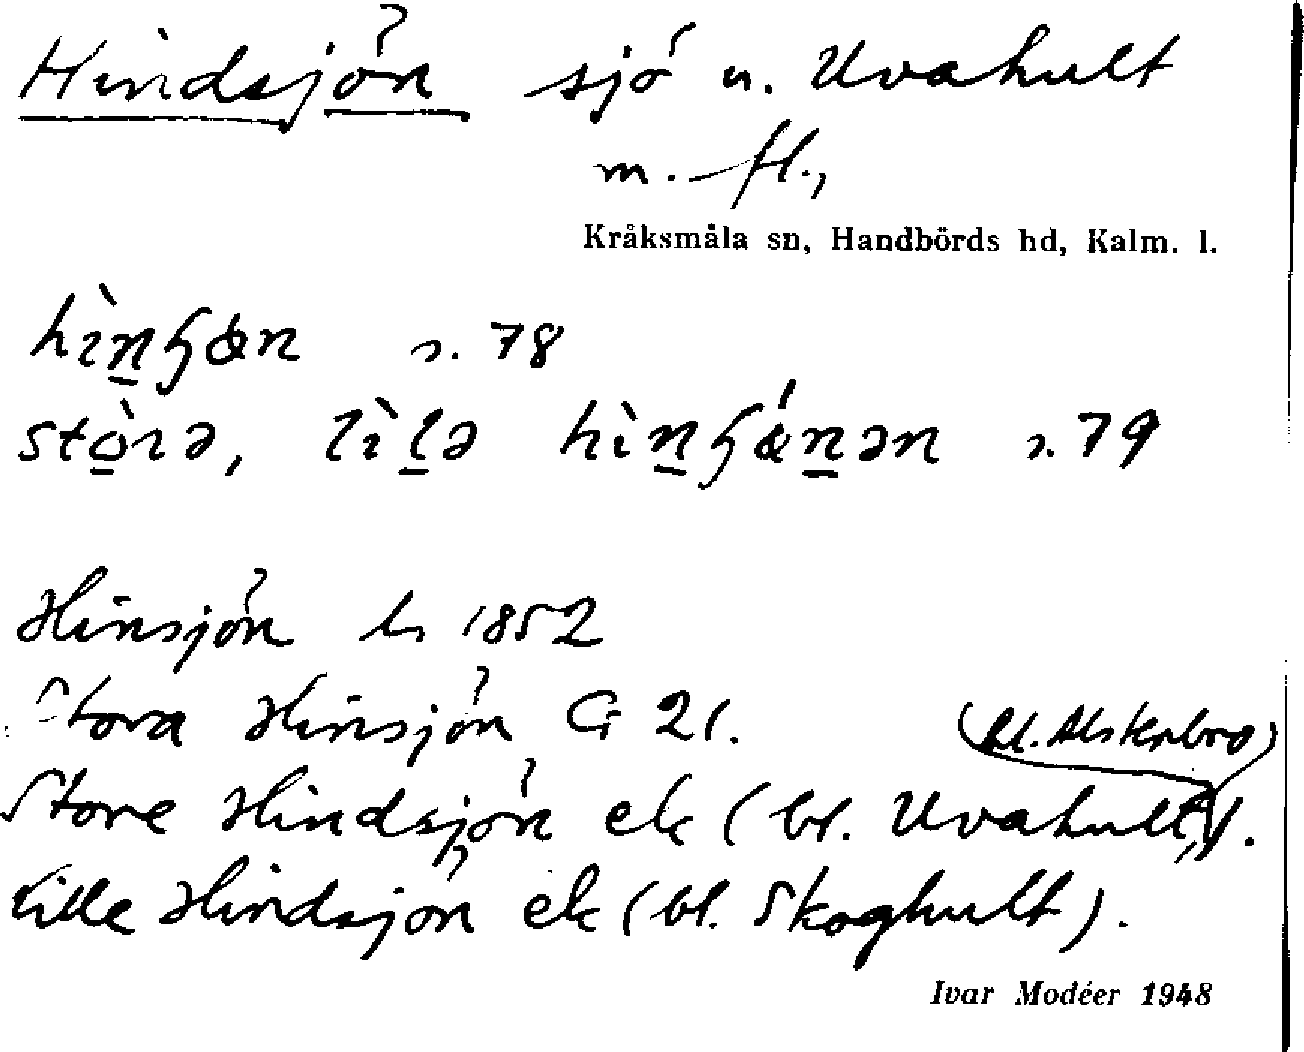 Hindsjön sjö u. Uvahult
m. fl.,
Kråksmåla sn, Handbörds hd, Kalm. l.
hìn̲ɧøn s. 78
stò̲rə, lìl̲ə hìn̲ɧǿn̲ən s. 79
Hinsjön ls 1852
Stora Hinsjön G 21. (bl. Alsterbro)
Store Hindsjön ek (bl. Uvahult).
Lille Hindsjön ek (bl. Skoghult).
Ivar Modéer 1948